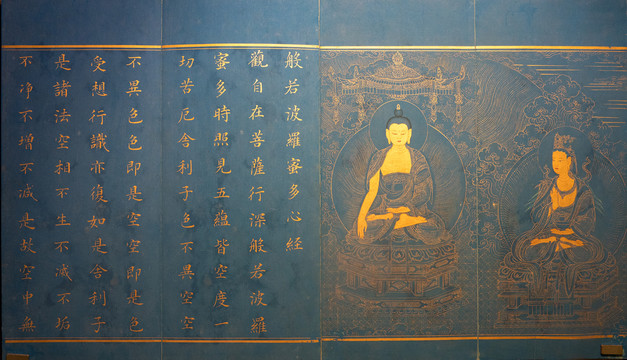 般若波羅蜜多心經
觀自在菩薩行深般若波羅
蜜多時照見五蘊皆空度一
切苦厄舍利子色不異空空
不異色色即是空空即是色
受想行識亦復如是舍利子
是諸法空相不生不滅不垢
不净不增不減是故空中無